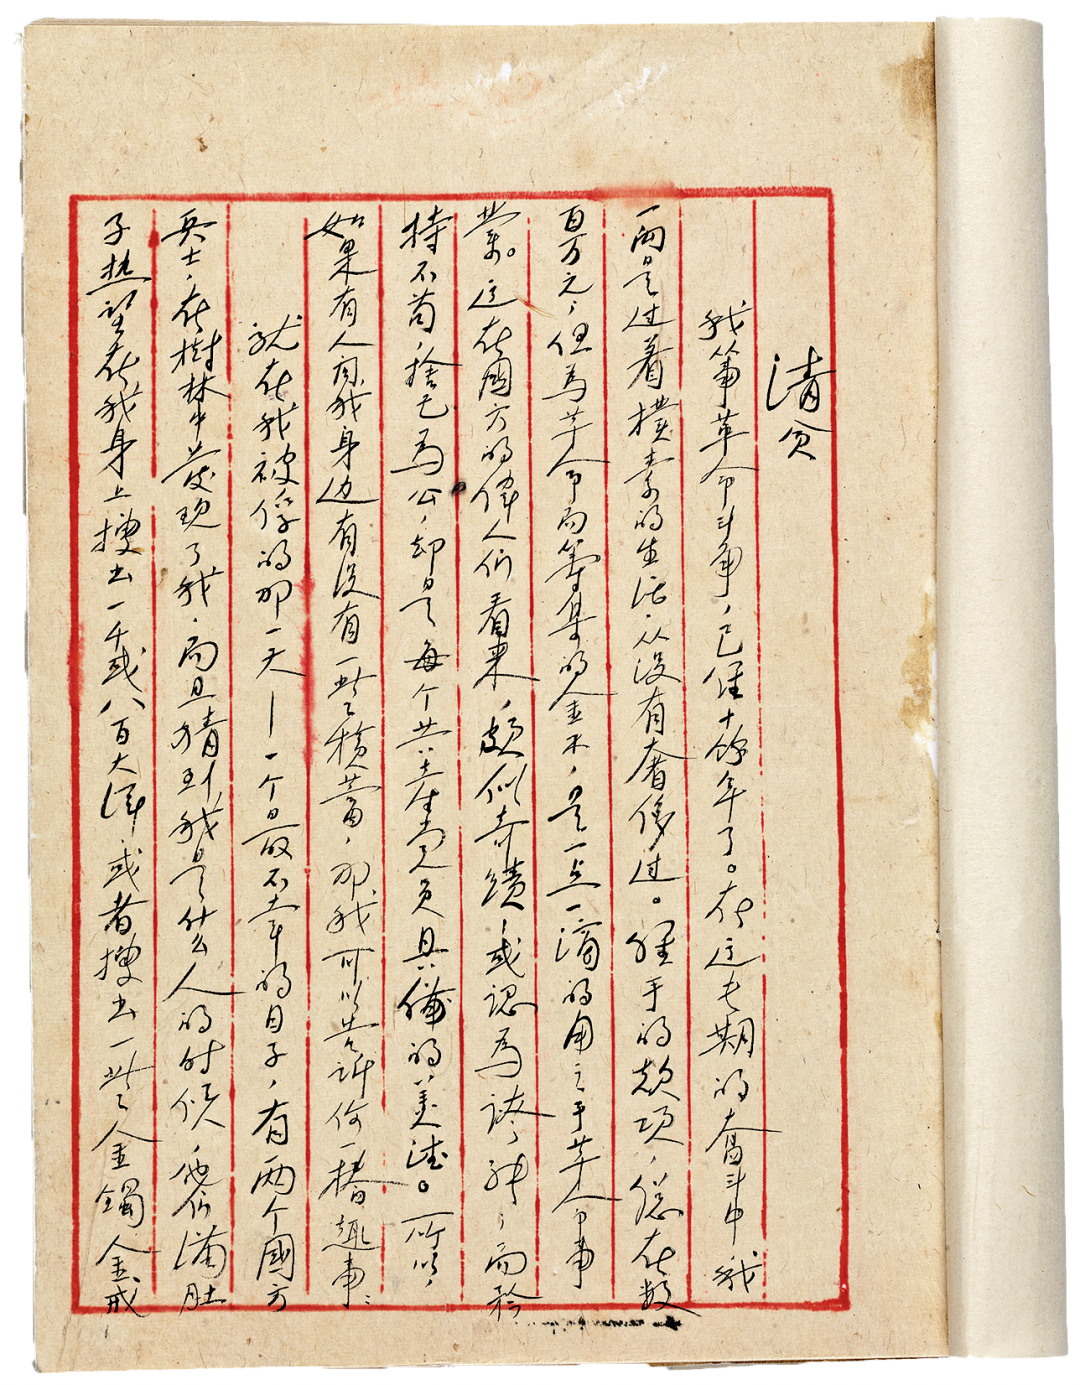 清贫
我篰革命斗争，已経十餘年了。在这長期的奮斗中，我
一向是过着樸素的生活，从没有奢侈过。経手的款项，总在数
百万元；但為革命而筹集的金钱，是一点一滴的用之于革命事
業。这在國方的偉人们看来，颇似奇蹟，或認為誇张；而矜
持不苟，捨己為公，却是每个共産党员具備的美德。所以，
如果有人问我身边有没有一些積蓄，那我可以告訴你一樁趣事：
就在我被俘的那一天——一个最不幸的日子，有两个國方
兵士，在樹林中发现了我，而且猜到我是什么人的时候，他们满肚
子热望在我身上搜出一千或八百大洋，或者搜出一些金鐲金戒